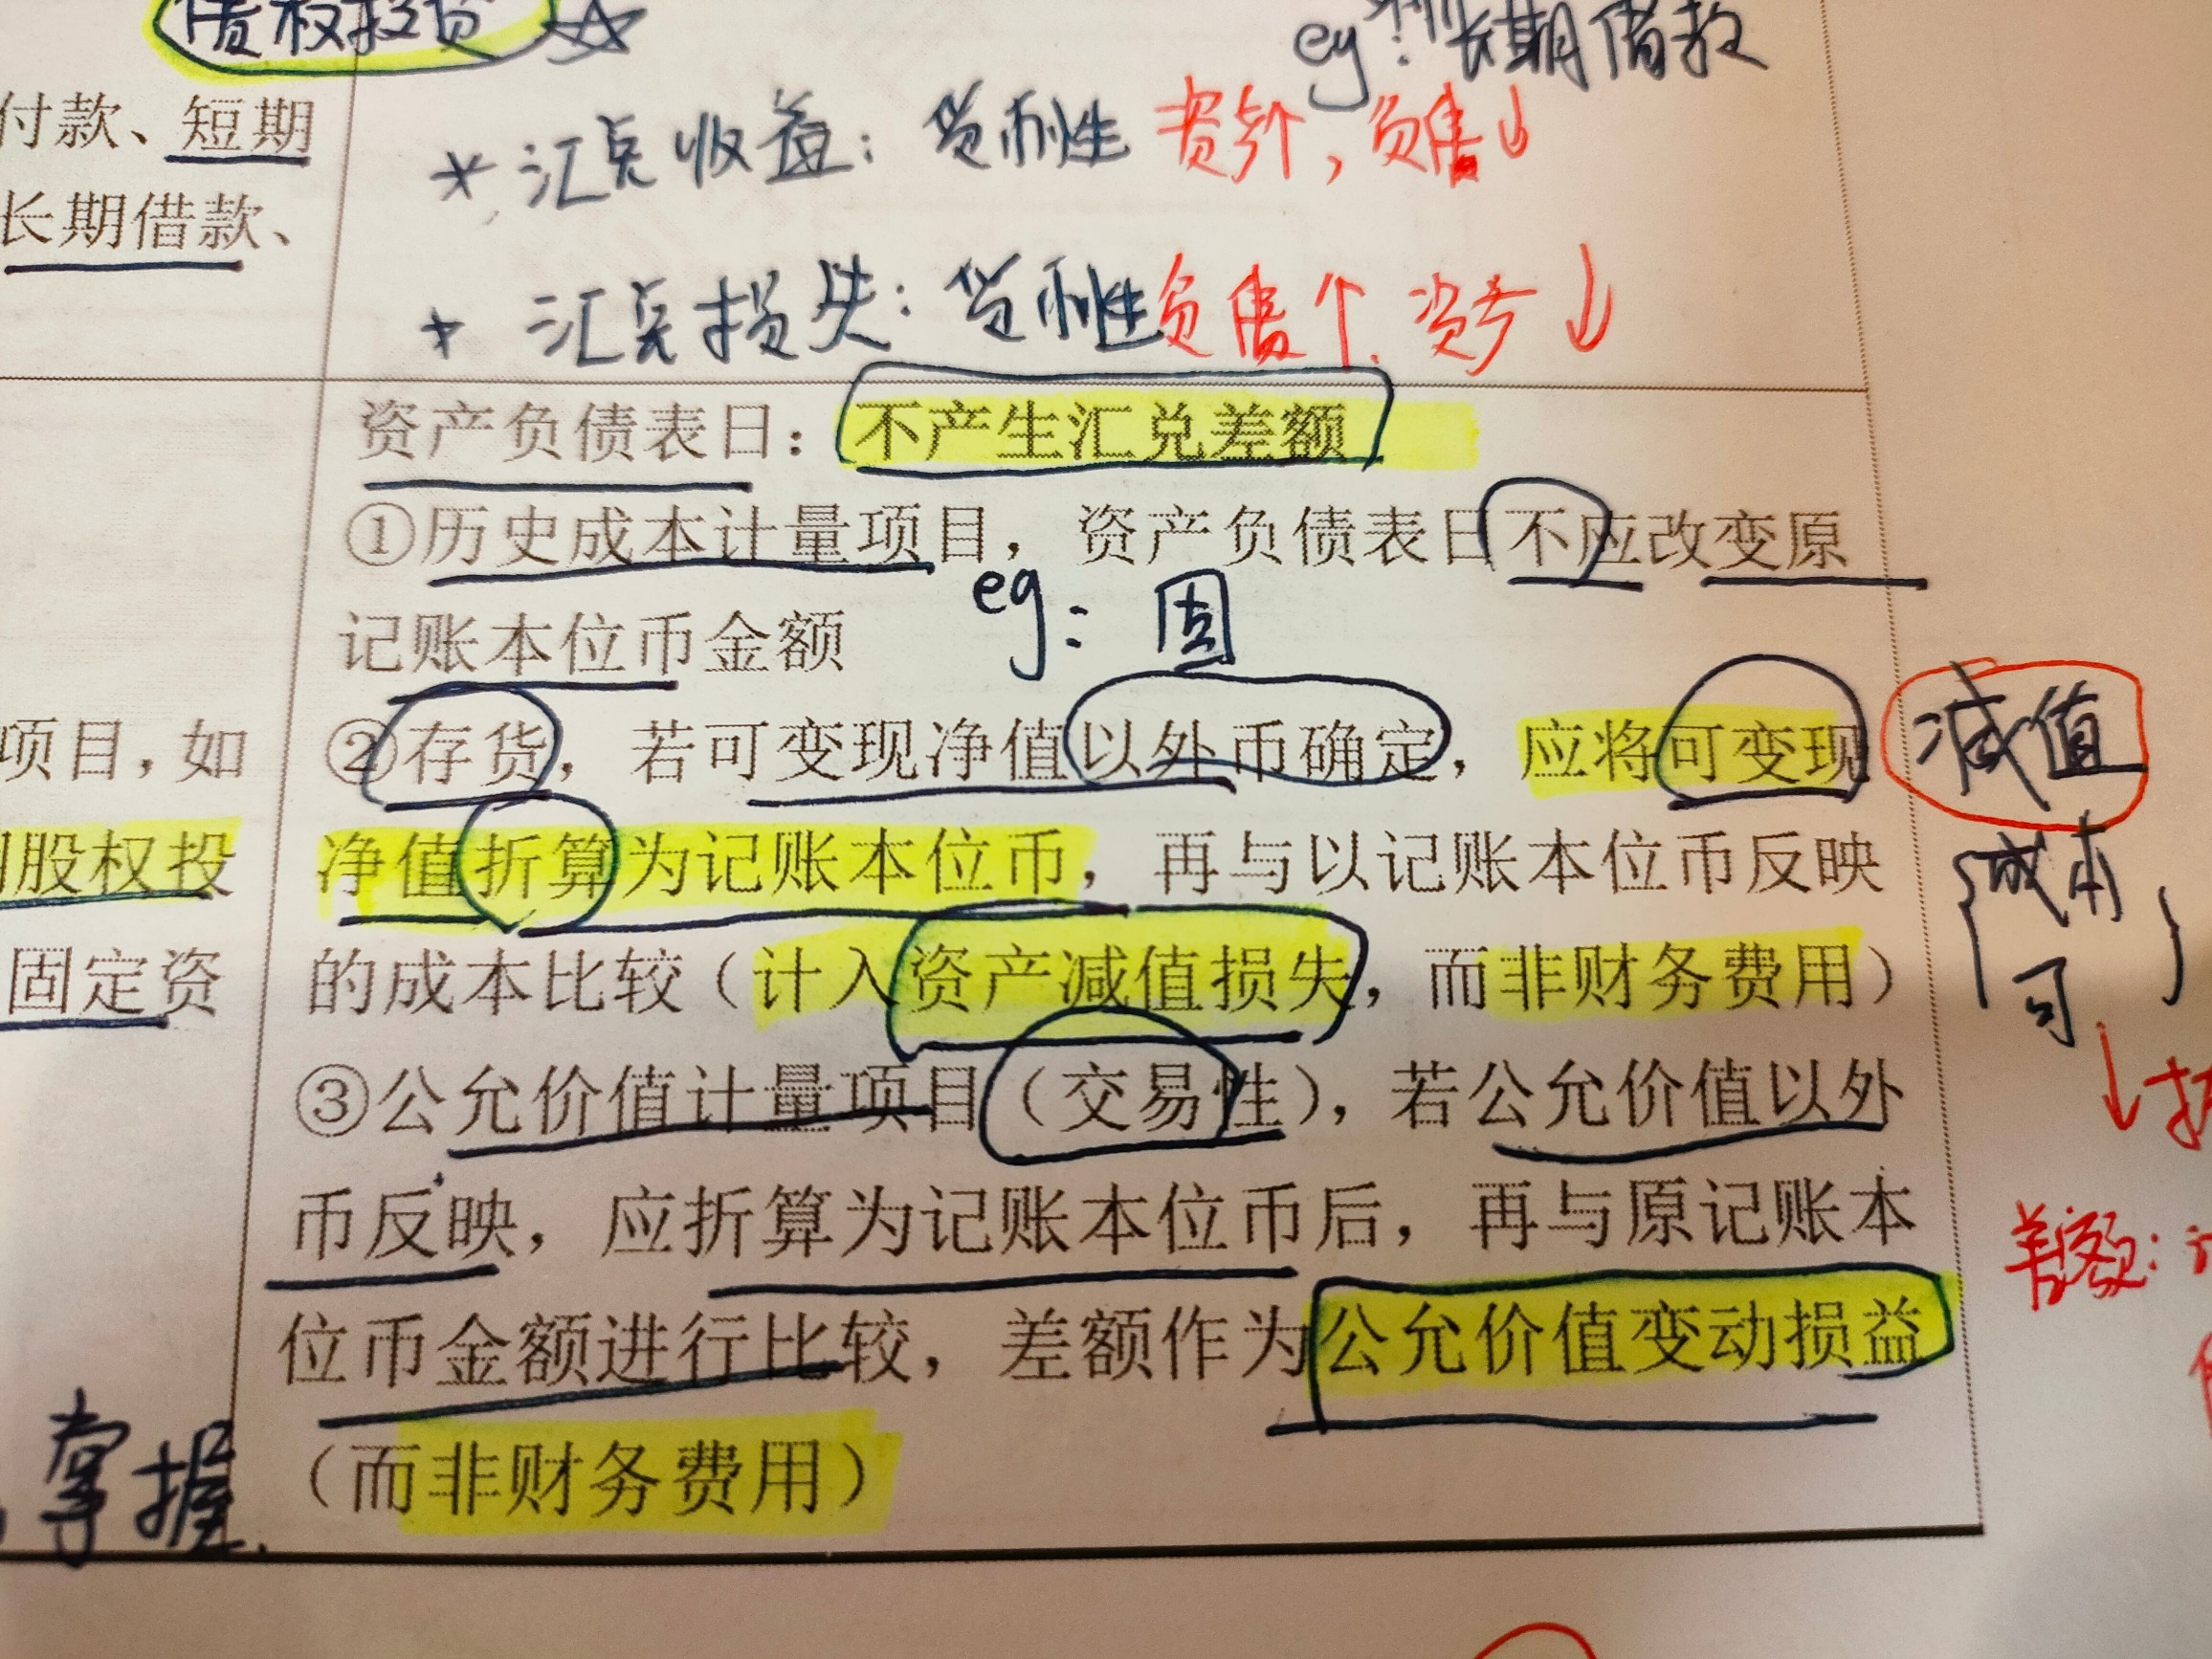 债权投资 ☆
eg: 长期借款
付款、短期
* 汇兑收益: 货币性 资产↑, 负债↓
长期借款、
* 汇兑损失: 货币性负债↑. 资产↓
资产负债表日：不产生汇兑差额
①历史成本计量项目，资产负债表日不应改变原
记账本位币金额 eg: 固
项目，如 ②存货，若可变现净值以外币确定，应将可变现 减值
股权投 净值折算为记账本位币，再与以记账本位币反映 成本
固定资 的成本比较（计入资产减值损失，而非财务费用） 可
③公允价值计量项目（交易性），若公允价值以外 ↓
币反映，应折算为记账本位币后，再与原记账本 差额:
位币金额进行比较，差额作为公允价值变动损益
掌握. （而非财务费用）